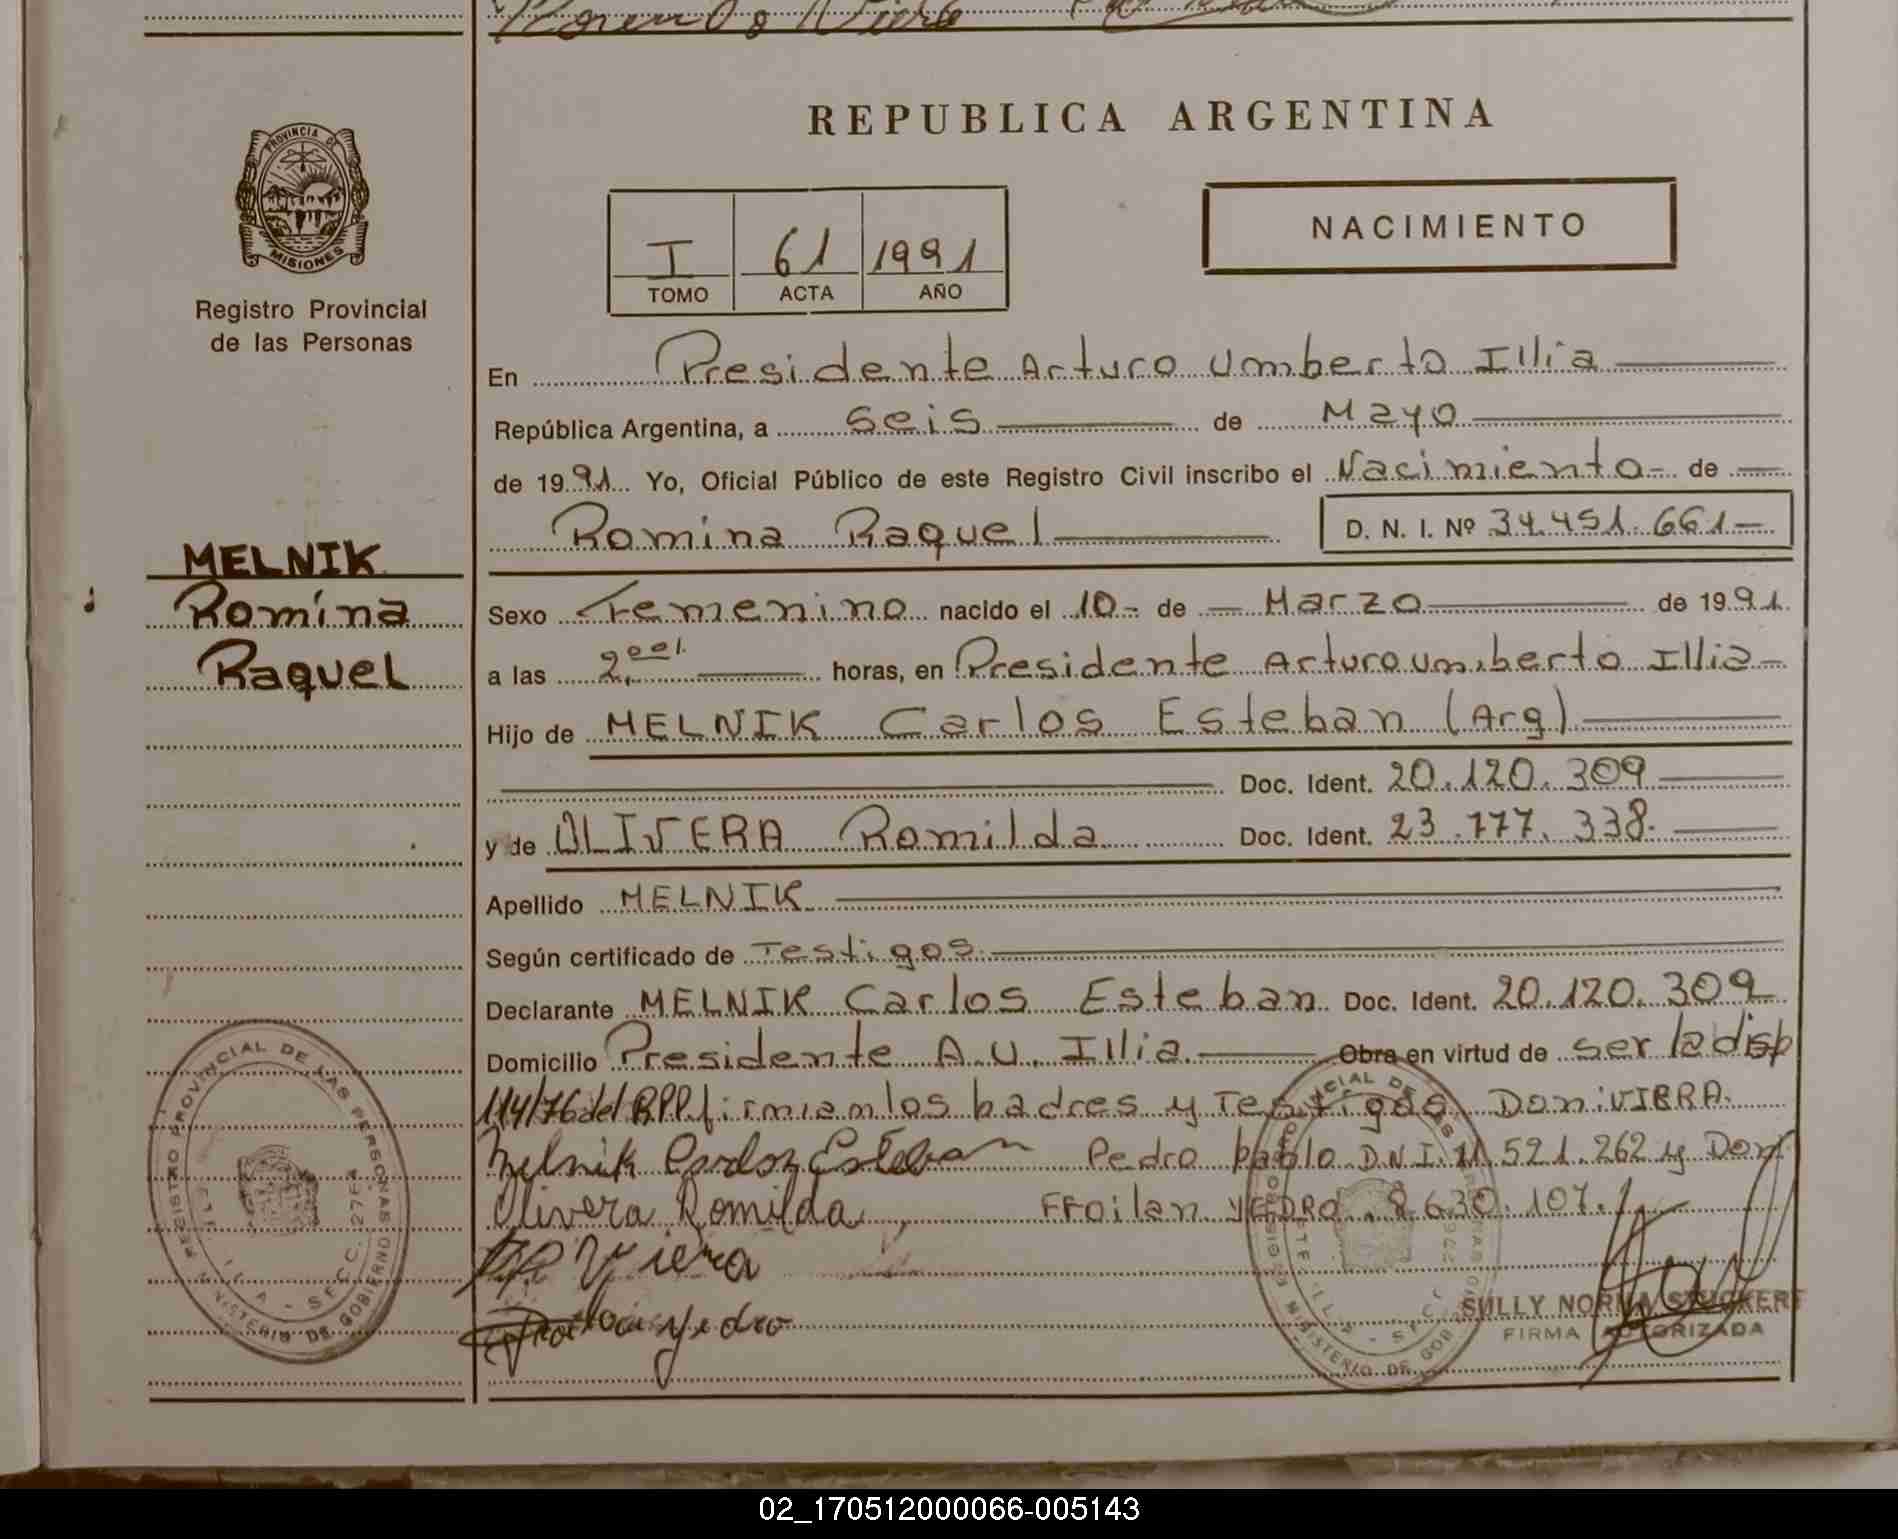 PROVINCIA DE
MISIONES
Registro Provincial
de las Personas
MELNIK
Romina
Raquel
REPUBLICA ARGENTINA
NACIMIENTO
I 61 1991
TOMO ACTA AÑO
En Presidente Arturo Umberto Illia
República Argentina, a seis de Mayo
de 1991 Yo, Oficial Público de este Registro Civil inscribo el Nacimiento de
Romina Raquel D. N. I. Nº 34.451.661
Sexo Femenino nacido el 10 de Marzo de 1991
a las 2,00 horas, en Presidente Arturo Umberto Illia
Hijo de MELNIK Carlos Esteban (Arg)
Doc. Ident. 20.120.309
y de OLIVERA Romilda Doc. Ident. 23.777.338
Apellido MELNIK
Según certificado de Testigos
Declarante MELNIK Carlos Esteban Doc. Ident. 20.120.309
Domicilio Presidente A.U. Illia Obra en virtud de ser la disp
114/76 del RPP firman los padres y Testigos Don VIERA
Melnik Carlos Esteban Pedro pablo D.N.I. 11.521.262 y Don
Olivera Romilda Froilan YEDRO 8.630.107
Viera
Froilan Yedro
SULLY NORMA STUCKERT
FIRMA AUTORIZADA
REGISTRO PROVINCIAL DE LAS PERSONAS
MINISTERIO DE GOBIERNO
02_170512000066-005143